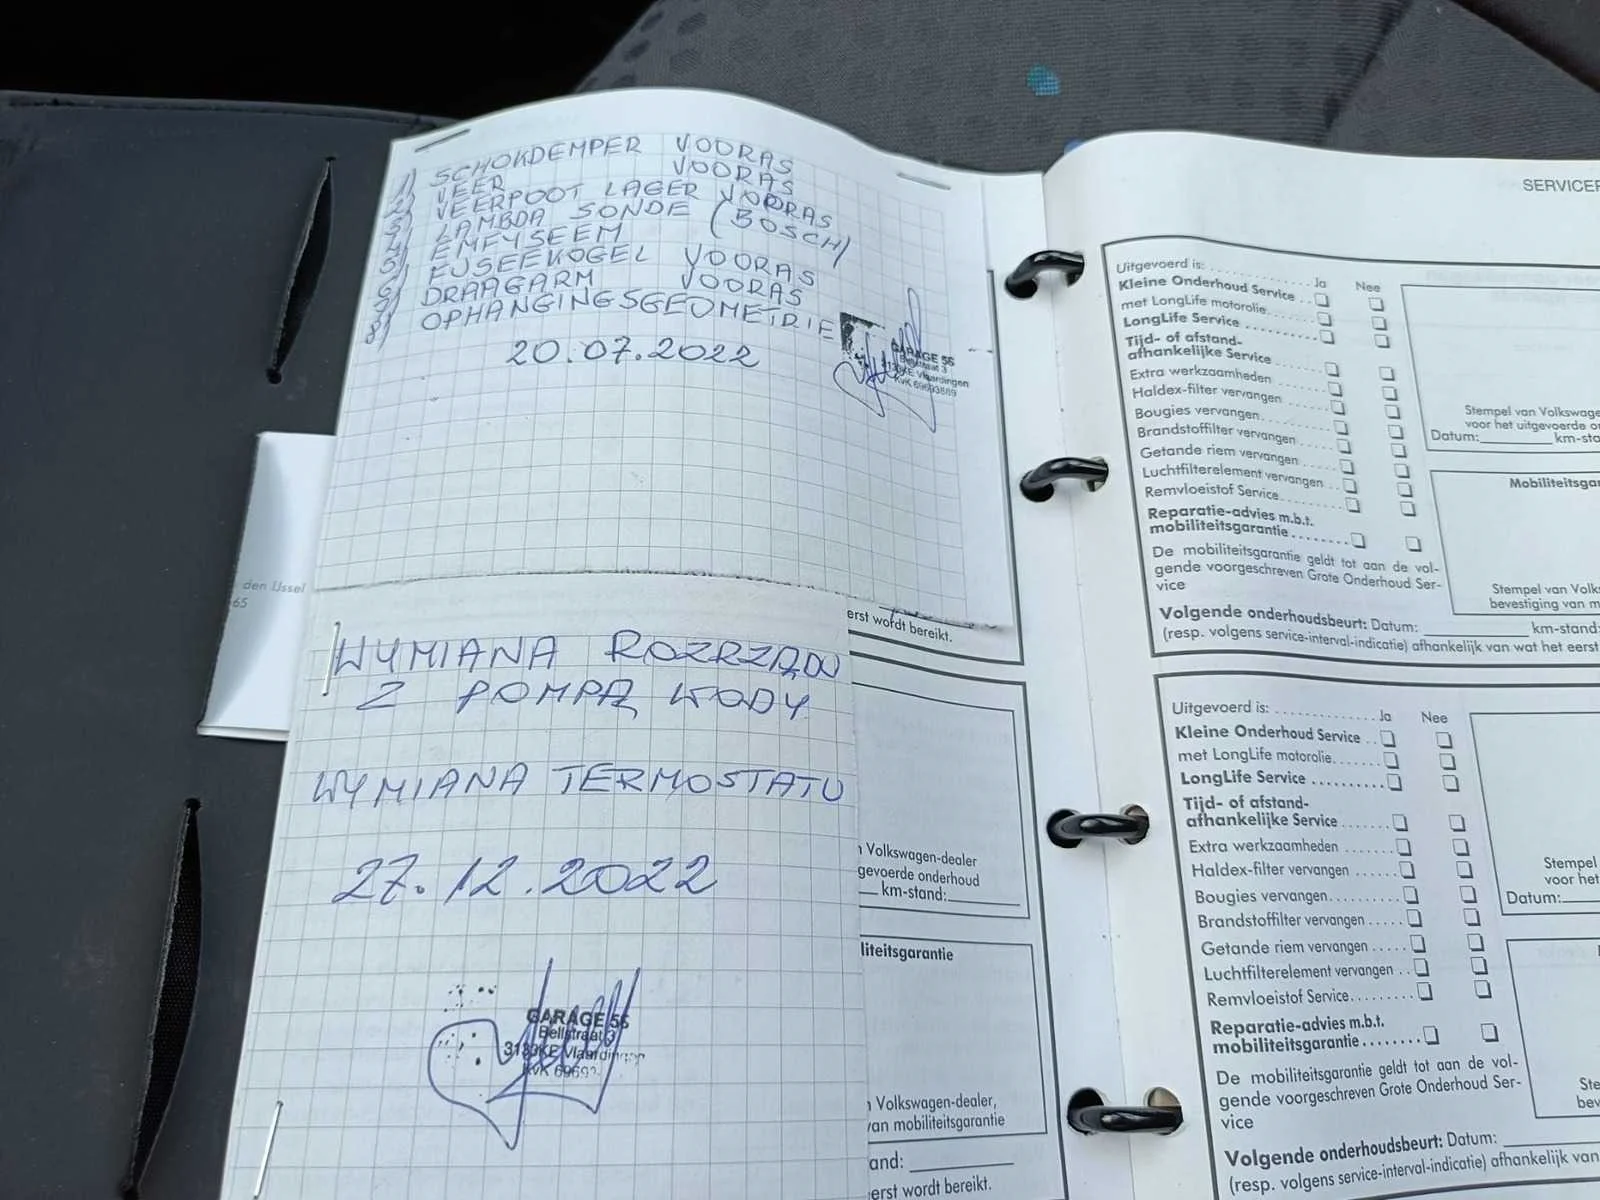 1) SCHOKDEMPER VOORAS
2) VEER VOORAS
3) VEERPOOT LAGER VOORAS
4) LAMBDA SONDE (BOSCH)
5) EMFYSEEM
6) FUSEEKOGEL VOORAS
7) DRAAGARM VOORAS
8) OPHANGINGSGEOMETRIE
20.07.2022
GARAGE 56
Bellstraat 3
Vlaardingen
KvK 69693889
den IJssel
65
WYMIANA ROZRZĄDU
Z POMPĄ WODY
WYMIANA TERMOSTATU
27.12.2022
GARAGE 56
Bellstraat 3
Vlaardingen
KvK
erst wordt bereikt.
Volkswagen-dealer
gevoerde onderhoud
km-stand:
liteitsgarantie
Volkswagen-dealer,
van mobiliteitsgarantie
and:
erst wordt bereikt.
SERVICE
Uitgevoerd is: Ja Nee
Kleine Onderhoud Service
met LongLife motorolie
LongLife Service
Tijd- of afstand-
afhankelijke Service
Extra werkzaamheden
Haldex-filter vervangen
Bougies vervangen
Brandstoffilter vervangen
Getande riem vervangen
Luchtfilterelement vervangen
Remvloeistof Service
Reparatie-advies m.b.t.
mobiliteitsgarantie
De mobiliteitsgarantie geldt tot aan de vol-
gende voorgeschreven Grote Onderhoud Ser-
vice
Volgende onderhoudsbeurt: Datum: km-stand:
(resp. volgens service-interval-indicatie) afhankelijk van wat het eerst
Stempel van Volkswage
voor het uitgevoerde o
Datum: km-sta
Mobiliteitsga
Stempel van Volks
bevestiging van m
Uitgevoerd is: Ja Nee
Kleine Onderhoud Service
met LongLife motorolie
LongLife Service
Tijd- of afstand-
afhankelijke Service
Extra werkzaamheden
Haldex-filter vervangen
Bougies vervangen
Brandstoffilter vervangen
Getande riem vervangen
Luchtfilterelement vervangen
Remvloeistof Service
Reparatie-advies m.b.t.
mobiliteitsgarantie
De mobiliteitsgarantie geldt tot aan de vol-
gende voorgeschreven Grote Onderhoud Ser-
vice
Volgende onderhoudsbeurt: Datum:
(resp. volgens service-interval-indicatie) afhankelijk van
Stempel
voor het
Datum:
Ste
bev